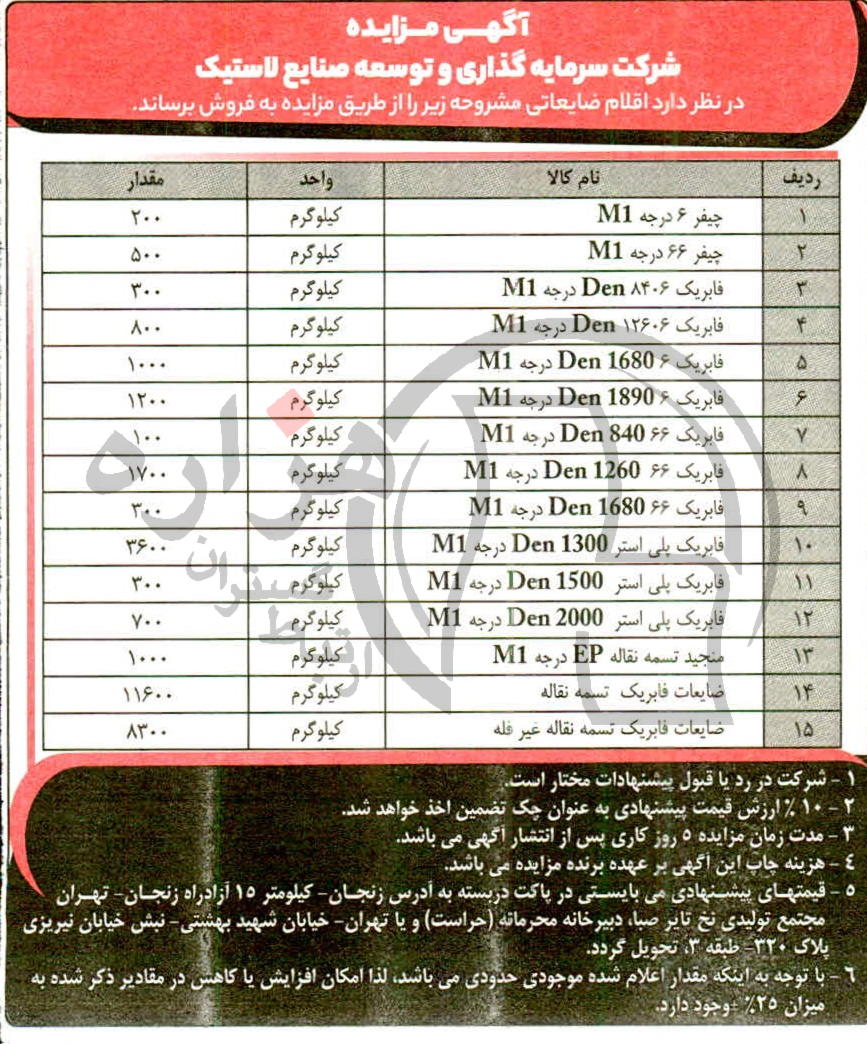 آگهی مزایده
شرکت سرمایه گذاری و توسعه صنایع لاستیک
در نظر دارد اقلام ضایعاتی مشروحه زیر را از طریق مزایده به فروش برساند.
ردیف نام کالا واحد مقدار
۱ چیفر ۶ درجه M1 کیلوگرم ۲۰۰
۲ چیفر ۶۶ درجه M1 کیلوگرم ۵۰۰
۳ فابریک ۸۴۰۶ Den درجه M1 کیلوگرم ۳۰۰
۴ فابریک ۱۲۶۰۶ Den درجه M1 کیلوگرم ۸۰۰
۵ فابریک ۶ Den 1680 درجه M1 کیلوگرم ۱۰۰۰
۶ فابریک ۶ Den 1890 درجه M1 کیلوگرم ۱۲۰۰
۷ فابریک ۶۶ Den 840 درجه M1 کیلوگرم ۱۰۰
۸ فابریک ۶۶ Den 1260 درجه M1 کیلوگرم ۱۷۰۰
۹ فابریک ۶۶ Den 1680 درجه M1 کیلوگرم ۳۰۰
۱۰ فابریک پلی استر Den 1300 درجه M1 کیلوگرم ۳۶۰۰
۱۱ فابریک پلی استر Den 1500 درجه M1 کیلوگرم ۳۰۰
۱۲ فابریک پلی استر Den 2000 درجه M1 کیلوگرم ۷۰۰
۱۳ منجید تسمه نقاله EP درجه M1 کیلوگرم ۱۰۰۰
۱۴ ضایعات فابریک تسمه نقاله کیلوگرم ۱۱۶۰۰
۱۵ ضایعات فابریک تسمه نقاله غیر فله کیلوگرم ۸۳۰۰
هزاره
ارتباط گستران
۱ - شرکت در رد یا قبول پیشنهادات مختار است.
۲ - ۱۰ ٪ ارزش قیمت پیشنهادی به عنوان چک تضمین اخذ خواهد شد.
۳ - مدت زمان مزایده ۵ روز کاری پس از انتشار آگهی می باشد.
٤ - هزینه چاپ این آگهی بر عهده برنده مزایده می باشد.
۵ - قیمتهای پیشنهادی می بایستی در پاکت دربسته به آدرس زنجان- کیلومتر ۱۵ آزادراه زنجان- تهران
مجتمع تولیدی نخ تایر صبا، دبیرخانه محرمانه (حراست) و یا تهران- خیابان شهید بهشتی- نبش خیابان نیریزی
پلاک ۳۲۰- طبقه ۳، تحویل گردد.
٦ - با توجه به اینکه مقدار اعلام شده موجودی حدودی می باشد، لذا امکان افزایش یا کاهش در مقادیر ذکر شده به
میزان ۲۵٪ وجود دارد.